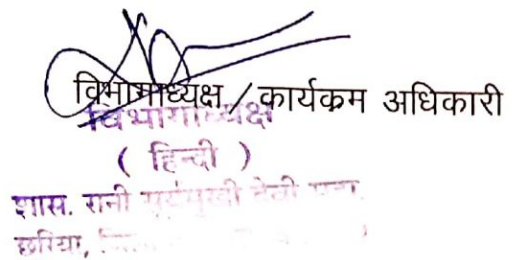 विभागाध्यक्ष / कार्यकम अधिकारी
विभागाध्यक्ष
( हिन्दी )
शास. रानी सूर्यमुखी देवी
छुरिया,